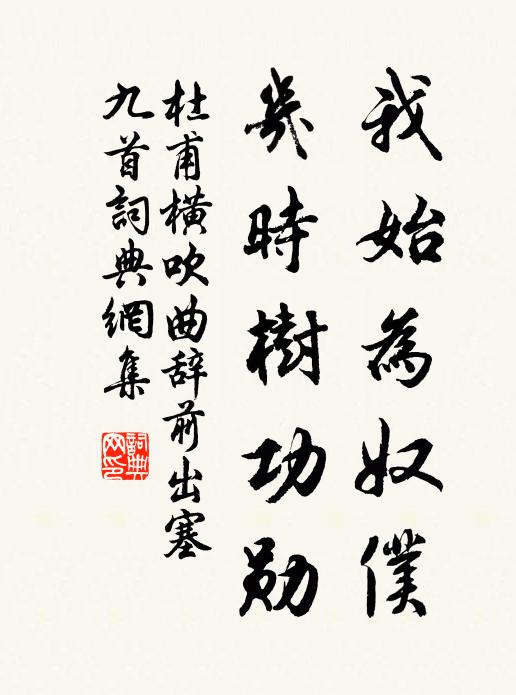 我始為奴僕
幾時樹功勛
杜甫橫吹曲辞前出塞
九首詞典網集
詞典網印